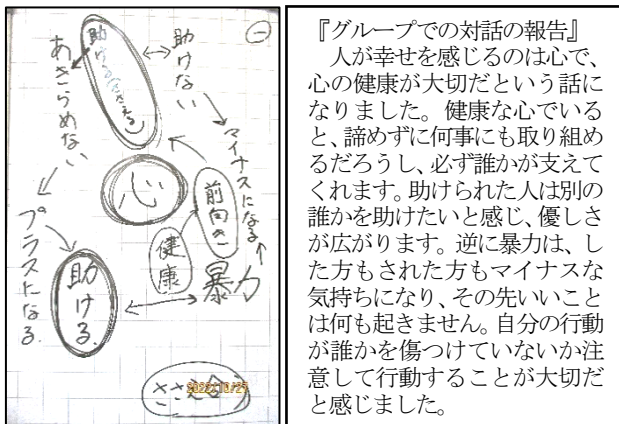 一
助けない
助ける(ささえる)
あきらめない
マイナスになる
心
前向き
健康
暴力
プラスになる
助ける
ささえ合う
2022/10/27
『グループでの対話の報告』
人が幸せを感じるのは心で、
心の健康が大切だという話に
なりました。健康な心でいる
と、諦めずに何事にも取り組め
るだろうし、必ず誰かが支えて
くれます。助けられた人は別の
誰かを助けたいと感じ、優しさ
が広がります。逆に暴力は、し
た方もされた方もマイナスな
気持ちになり、その先いいこと
は何も起きません。自分の行動
が誰かを傷つけていないか注
意して行動することが大切だ
と感じました。